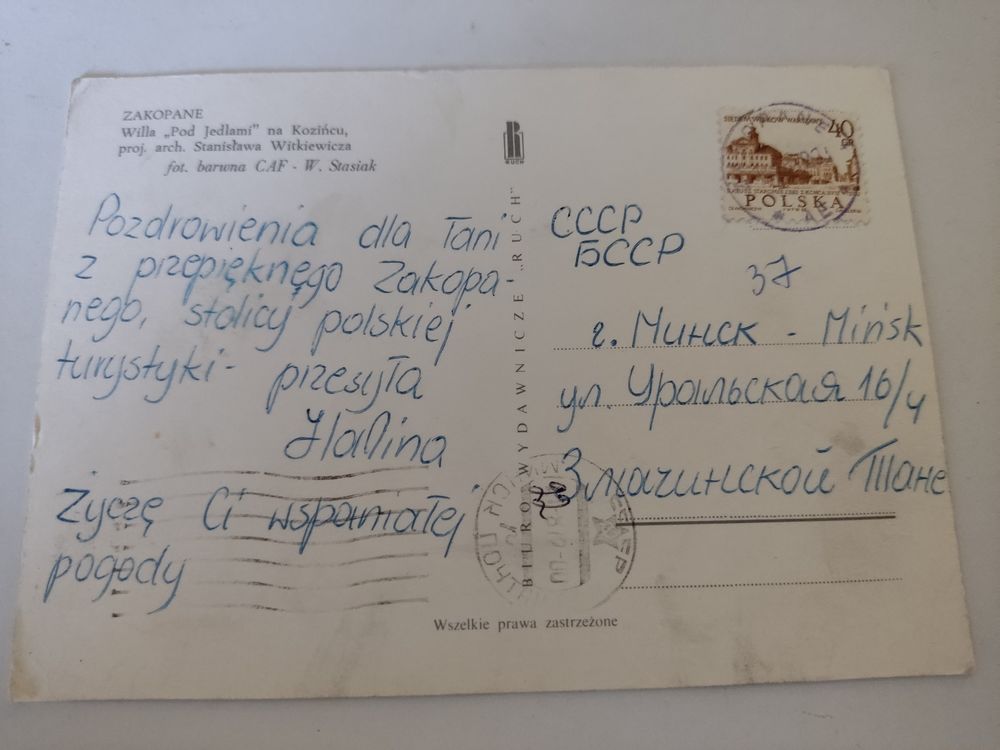 ZAKOPANE
Willa „Pod Jedłami” na Kozińcu,
proj. arch. Stanisława Witkiewicza
fot. barwna CAF - W. Stasiak
Pozdrowienia dla Tani
z przepięknego Zakopa-
nego, stolicy polskiej
turystyki - przesyła
Halina
Życzę Ci wspaniałej
pogody
RUCH
BIURO WYDAWNICZE „RUCH”
SIEDEM WIEKÓW WARSZAWY
40 GR
POLSKA
СССР
БССР
37
г. Минск - Mińsk
ул. Уральская 16/4
Змачинской Тане
МИНСК ПОЧТАМТ
Wszelkie prawa zastrzeżone